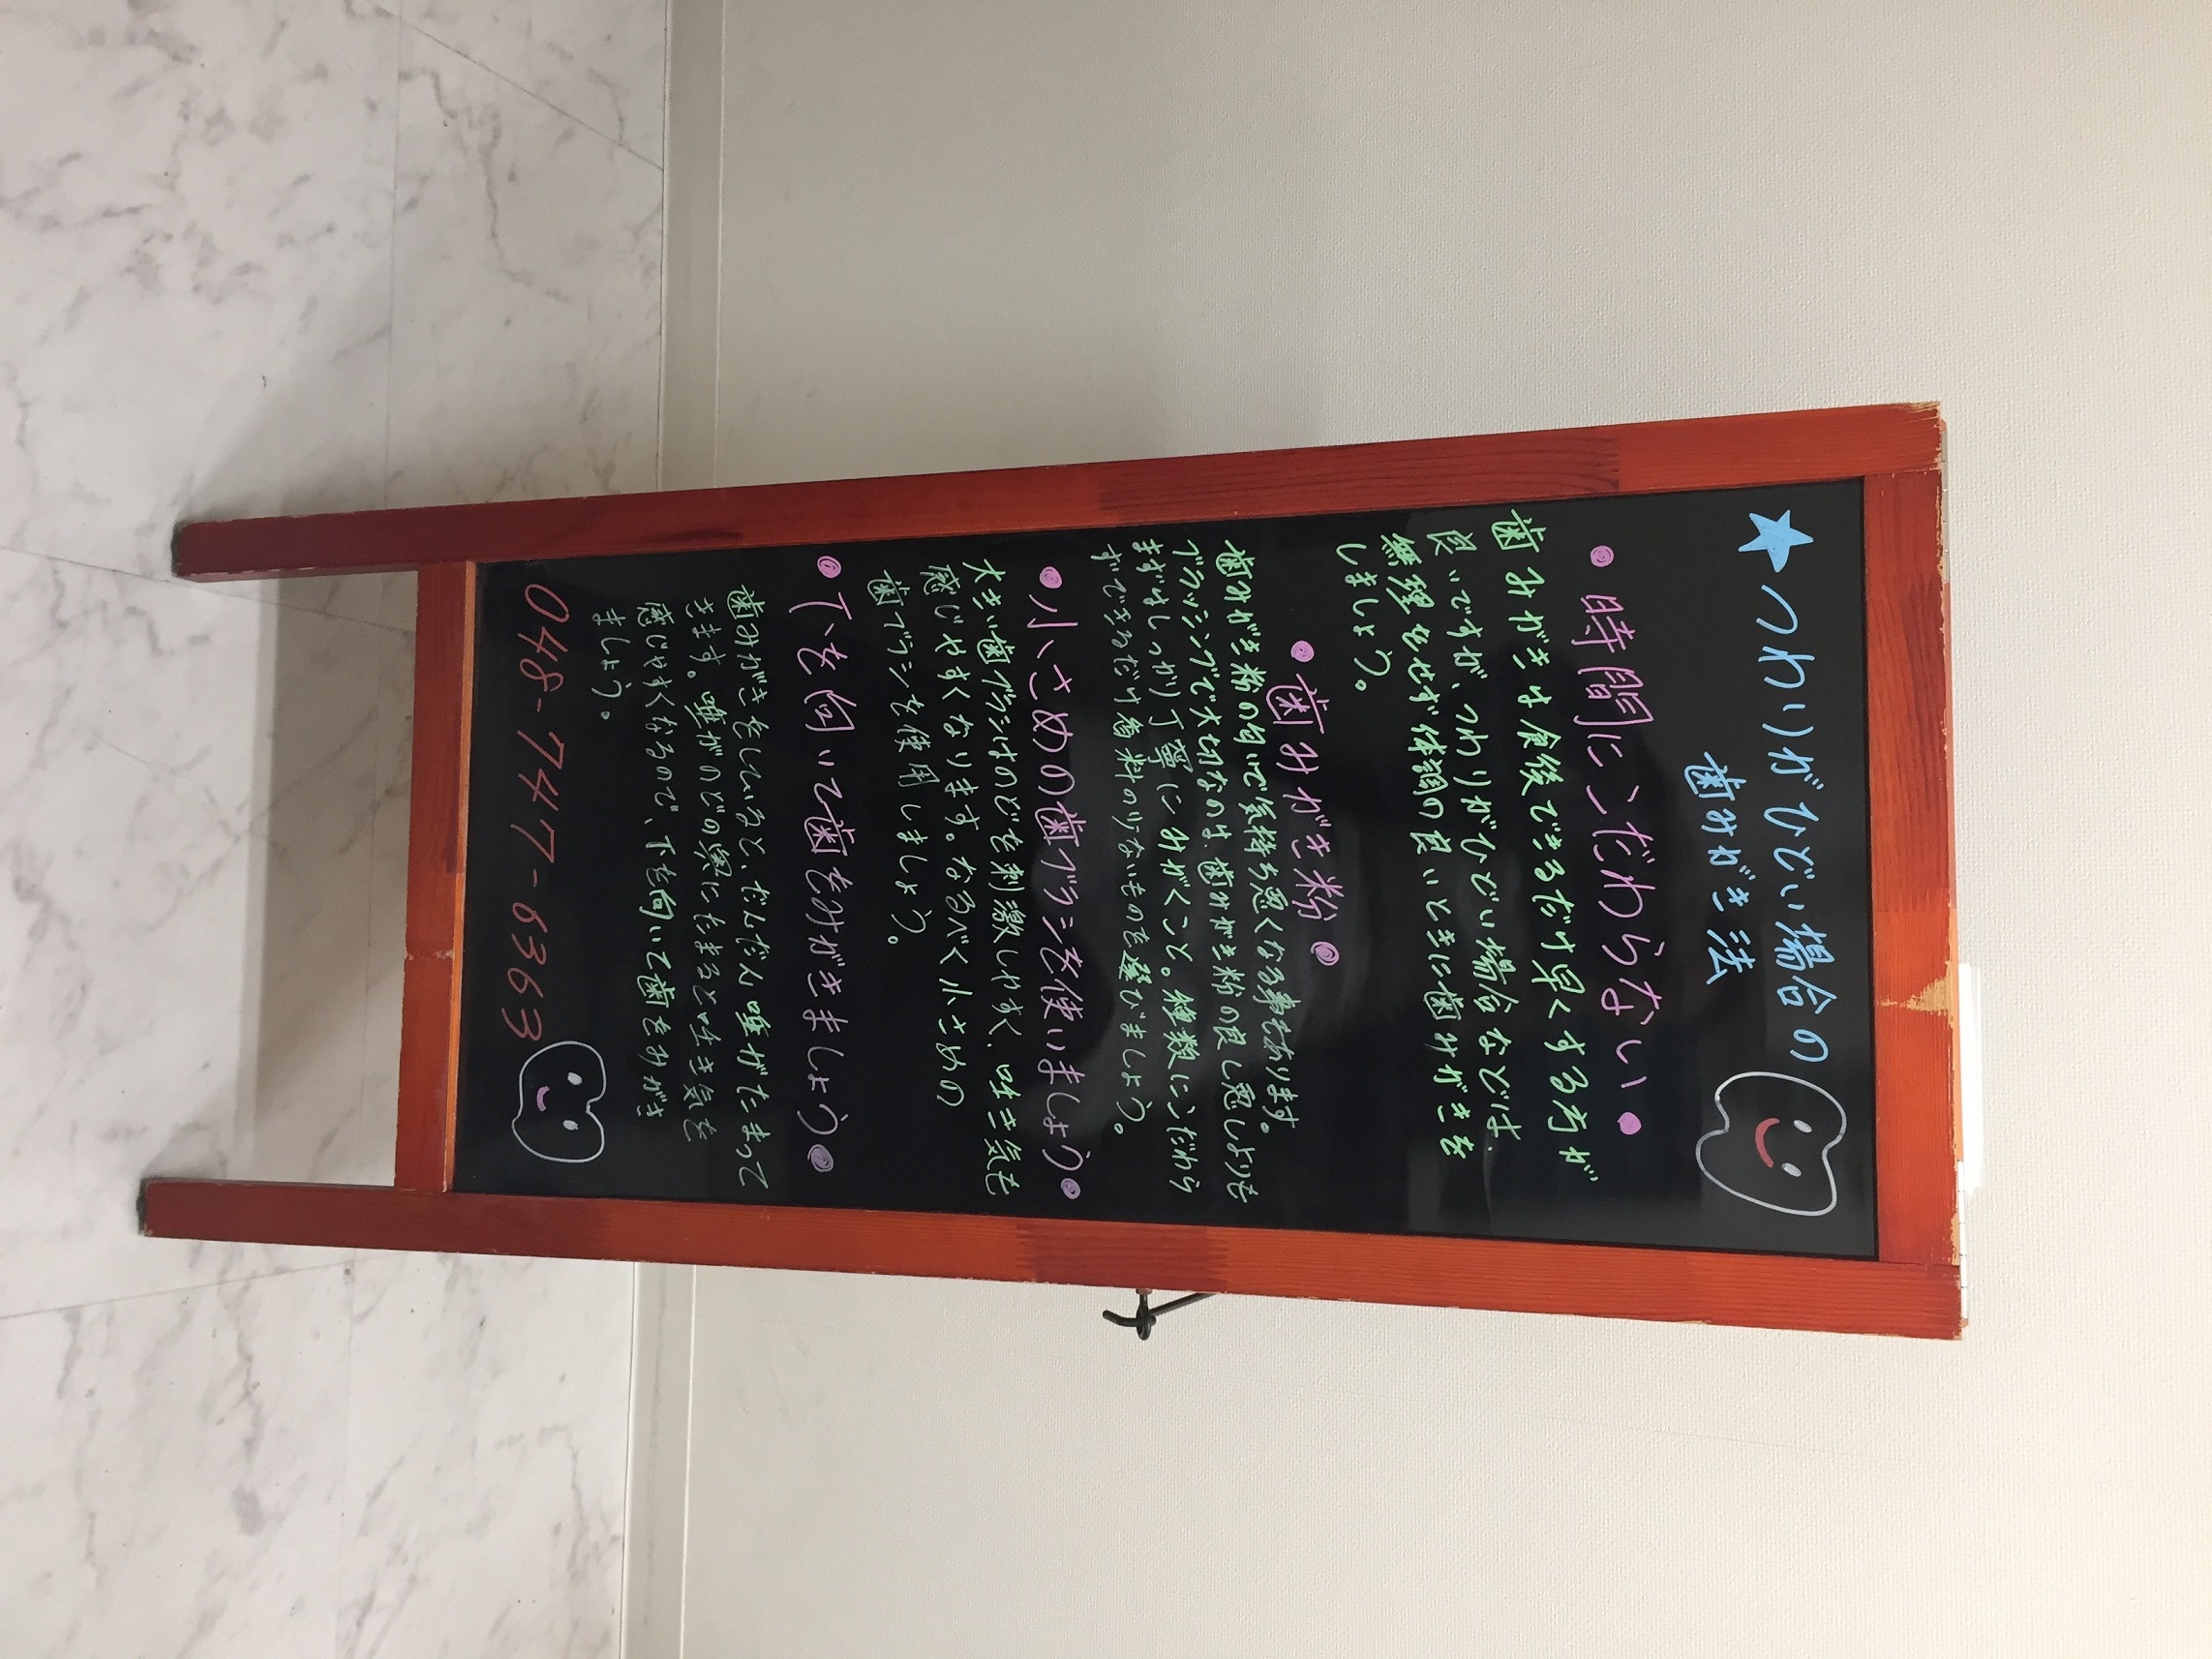 ★つわりがひどい場合の
歯みがき法
●時間にこだわらない●
歯みがきは食後できるだけ早くする方が
良いですが、つわりがひどい場合などは、
無理をせず体調の良いときに歯みがきを
しましょう。
●歯みがき粉●
歯みがき粉の匂いで気持ち悪くなる事もあります。
ブラッシングで大切なのは、歯みがき粉の良し悪しよりも
まずはしっかり丁寧にみがくこと。種類にこだわら
ずできるだけ香料の少ないものを選びましょう。
●小さめの歯ブラシを使いましょう●
大きい歯ブラシはのどを刺激しやすく、吐き気も
感じやすくなります。なるべく小さめの
歯ブラシを使用しましょう。
●下を向いて歯をみがきましょう●
歯みがきをしていると、だんだん唾がたまって
きます。唾がのどの奥にたまると吐き気を
感じやすくなるので、下を向いて歯をみがき
ましょう。
048-747-6363